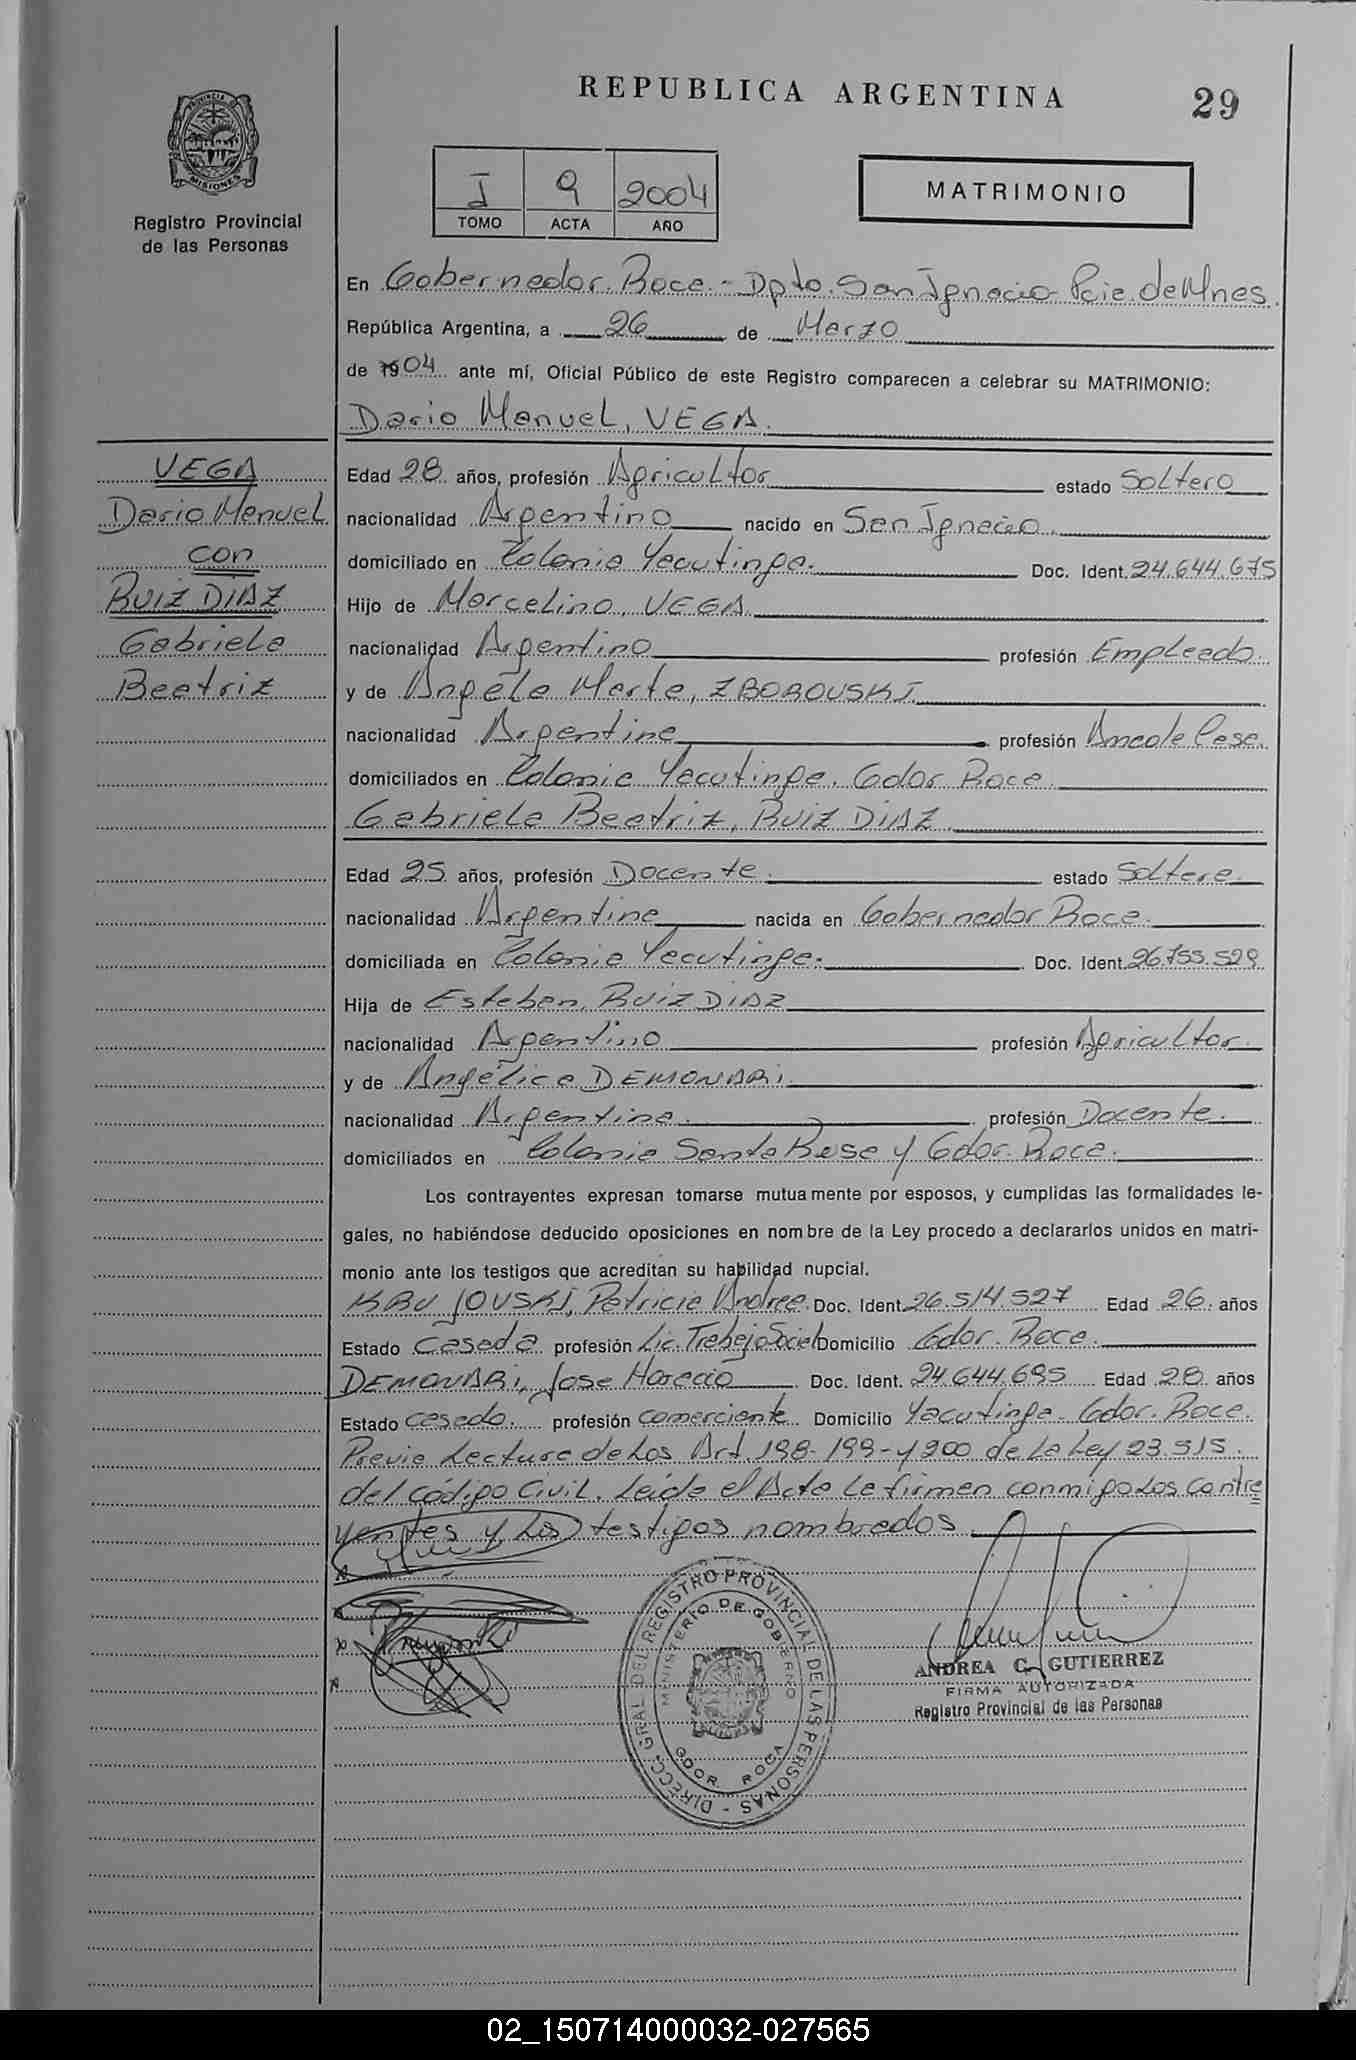 REPUBLICA ARGENTINA
29
PROVINCIA DE MISIONES
Registro Provincial
de las Personas
I 9 2004
TOMO ACTA AÑO
MATRIMONIO
En Gobernador Roca - Dpto. San Ignacio Pcia. de Mnes.
República Argentina, a 26 de Marzo
de 1904 ante mí, Oficial Público de este Registro comparecen a celebrar su MATRIMONIO:
Dario Manuel, VEGA.
VEGA
Dario Manuel
con
RUIZ DIAZ
Gabriela
Beatriz
Edad 28 años, profesión Agricultor estado Soltero
nacionalidad Argentino nacido en San Ignacio
domiciliado en Colonia Yacutinga. Doc. Ident. 24.644.675
Hijo de Marcelino, VEGA
nacionalidad Argentino profesión Empleado.
y de Angela Marta, ZBOROUSKI
nacionalidad Argentina profesión Ama de Casa.
domiciliados en Colonia Yacutinga. Gdor Roca
Gabriela Beatriz, RUIZ DIAZ
Edad 25 años, profesión Docente. estado Soltera
nacionalidad Argentina nacida en Gobernador Roca.
domiciliada en Colonia Yacutinga. Doc. Ident. 26.755.529
Hija de Esteban, RUIZ DIAZ
nacionalidad Argentino profesión Agricultor.
y de Angélica DEMONARI
nacionalidad Argentina. profesión Docente.
domiciliados en Colonia Santa Rosa y Gdor. Roca.
Los contrayentes expresan tomarse mutuamente por esposos, y cumplidas las formalidades le-
gales, no habiéndose deducido oposiciones en nombre de la Ley procedo a declararlos unidos en matri-
monio ante los testigos que acreditan su habilidad nupcial.
KRUJOUSKI, Patricia Andrea. Doc. Ident. 26.514.527 Edad 26. años
Estado Casada profesión Lic. Trabajo Social Domicilio Gdor. Roca.
DEMONARI, Jose Horacio Doc. Ident. 24.644.695 Edad 28 años
Estado Casado. profesión Comerciante Domicilio Yacutinga - Gdor. Roca.
Previa Lectura de Los Art. 198-199-y 200 de La Ley 23.515.
del Código Civil. Leída el Acta La firman conmigo Los contra
yentes y Los testigos nombrados
DIRECC. GRAL DEL REGISTRO PROVINCIAL DE LAS PERSONAS -
MINISTERIO DE GOBIERNO
GDOR. ROCA
ANDREA C. GUTIERREZ
FIRMA AUTORIZADA
Registro Provincial de las Personas
02_150714000032-027565